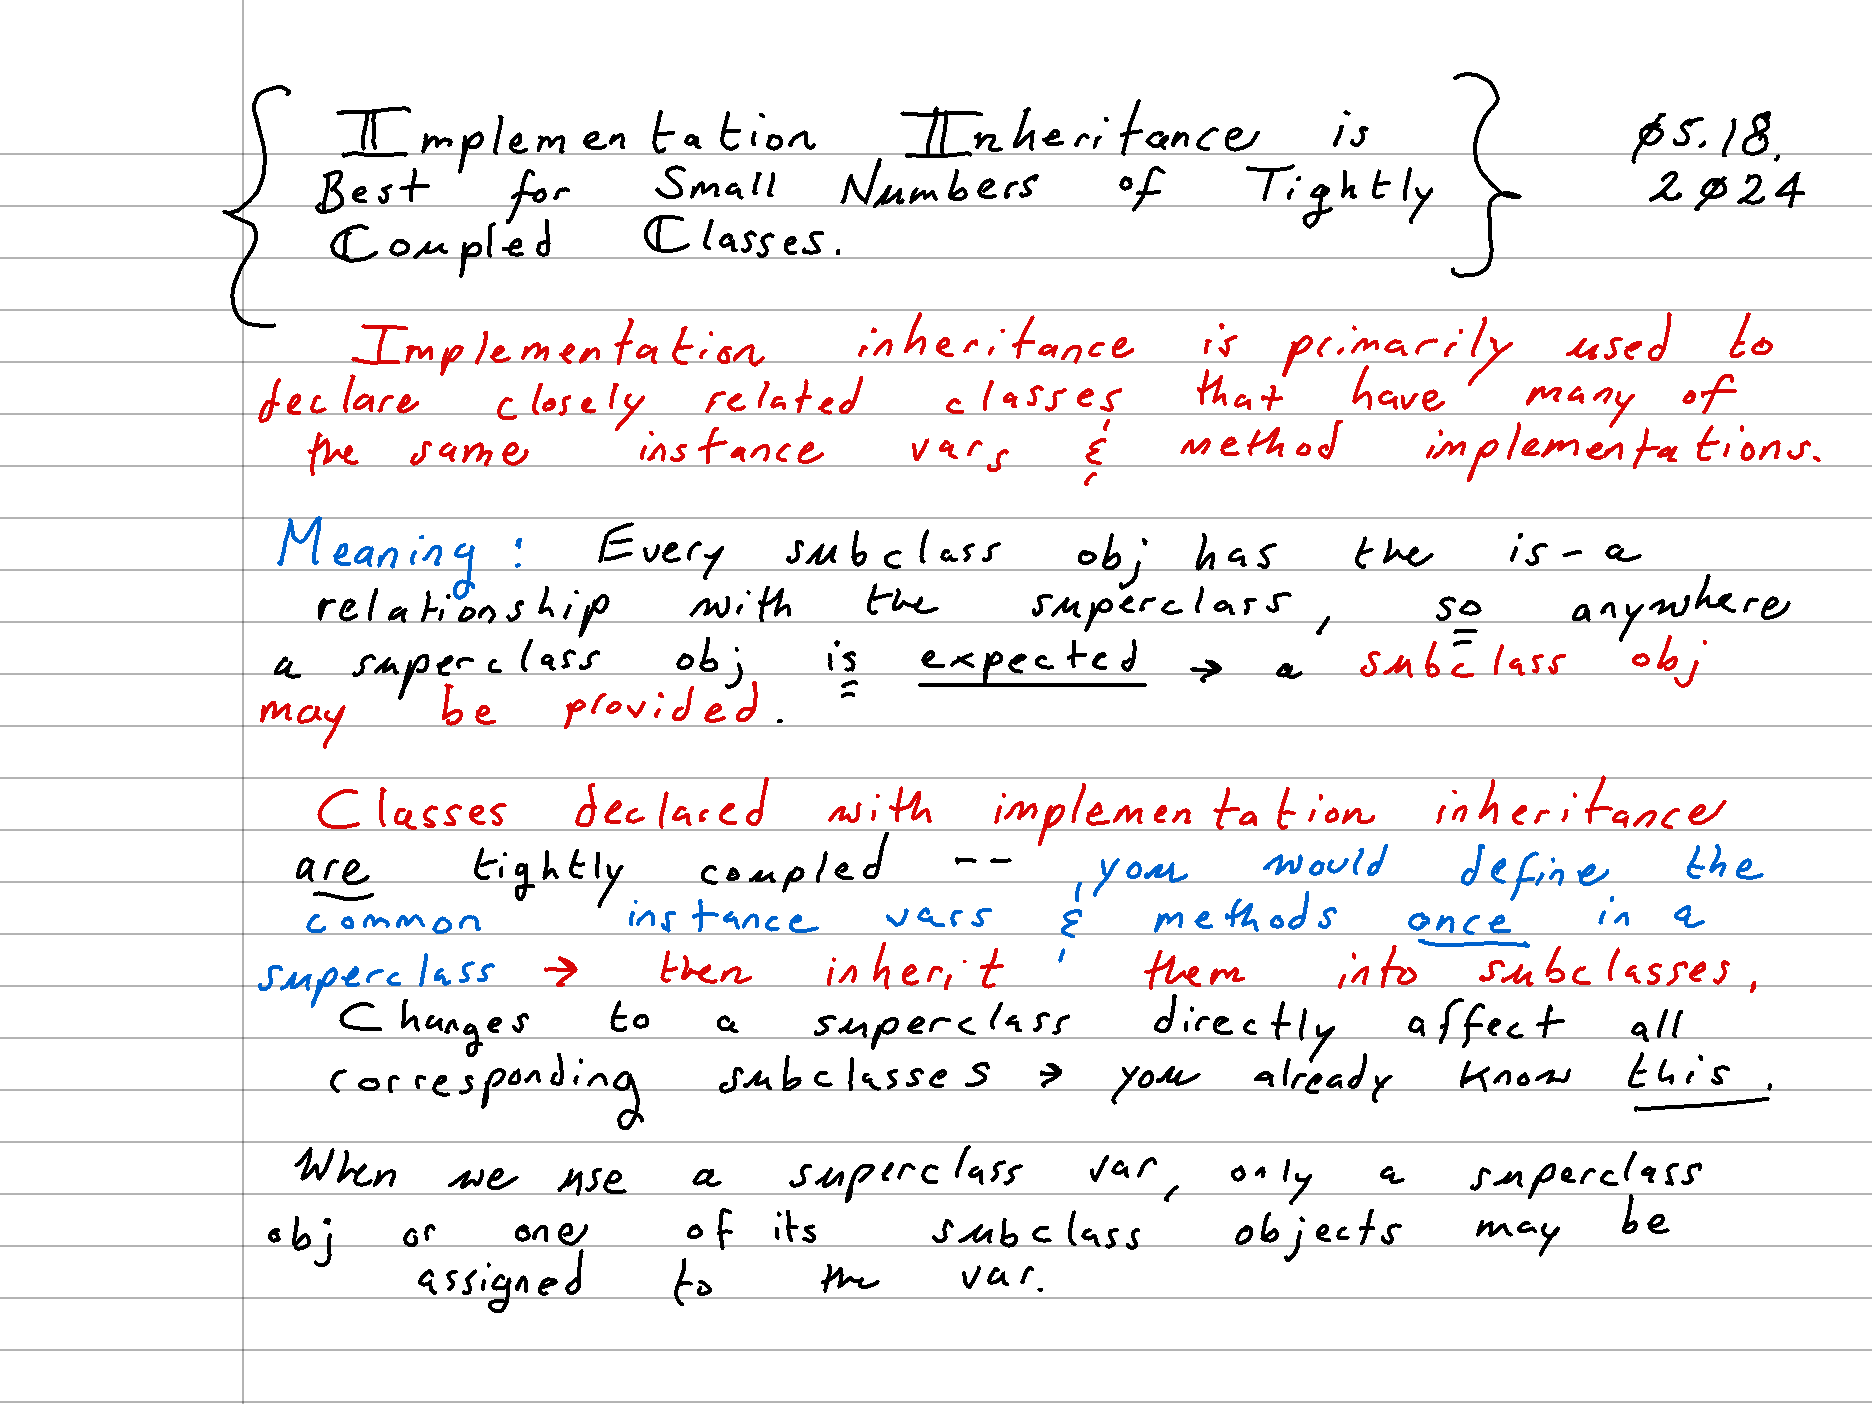 Implementation Inheritance is
Best for Small Numbers of Tightly
Coupled Classes.
ø5.18.
2ø24
Implementation inheritance is primarily used to
declare closely related classes that have many of
the same instance vars & method implementations.
Meaning: Every subclass obj has the is-a
relationship with the superclass, so anywhere
a superclass obj is expected → a subclass obj
may be provided.
Classes declared with implementation inheritance
are tightly coupled -- you would define the
common instance vars & methods once in a
superclass → then inherit them into subclasses.
Changes to a superclass directly affect all
corresponding subclasses → you already know this.
When we use a superclass var, only a superclass
obj or one of its subclass objects may be
assigned to the var.